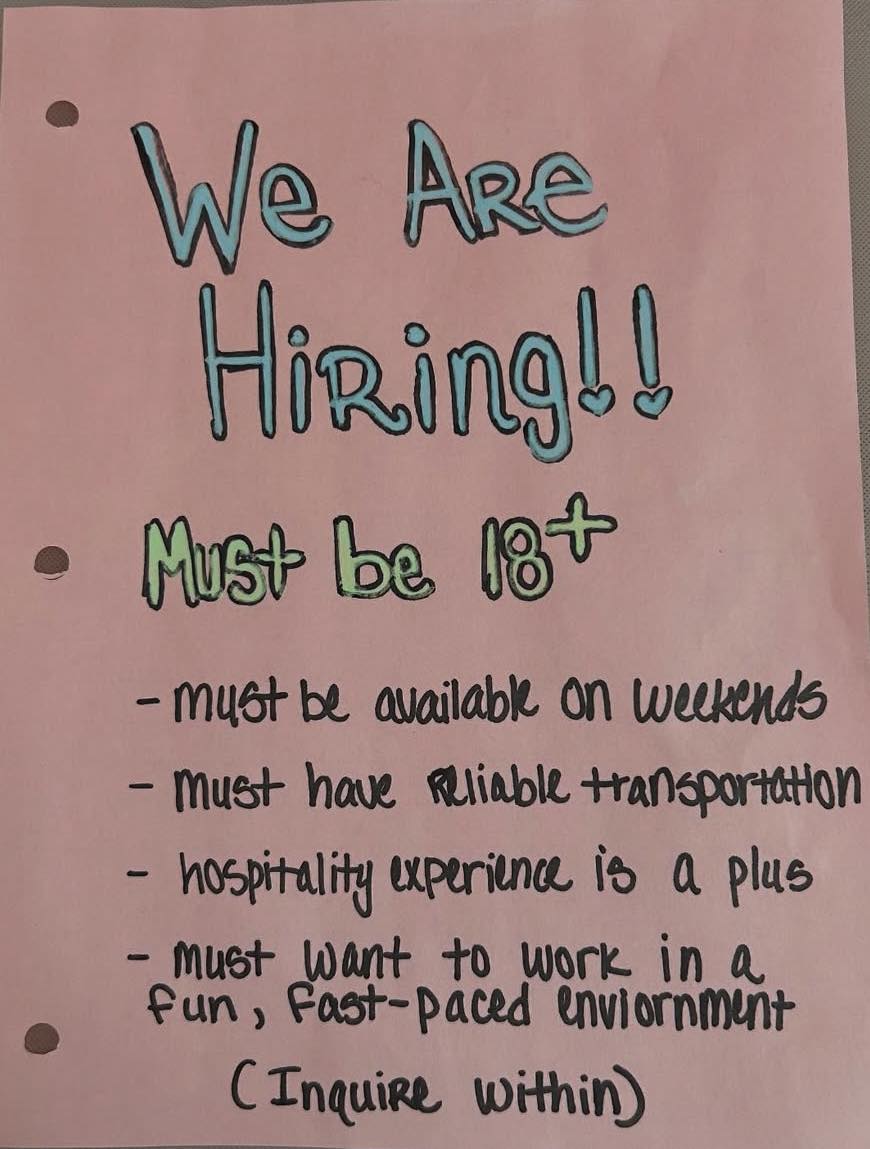 We Are
Hiring!!
Must be 18+
- must be available on weekends
- must have reliable transportation
- hospitality experience is a plus
- must want to work in a
fun, fast-paced enviornment
(Inquire within)